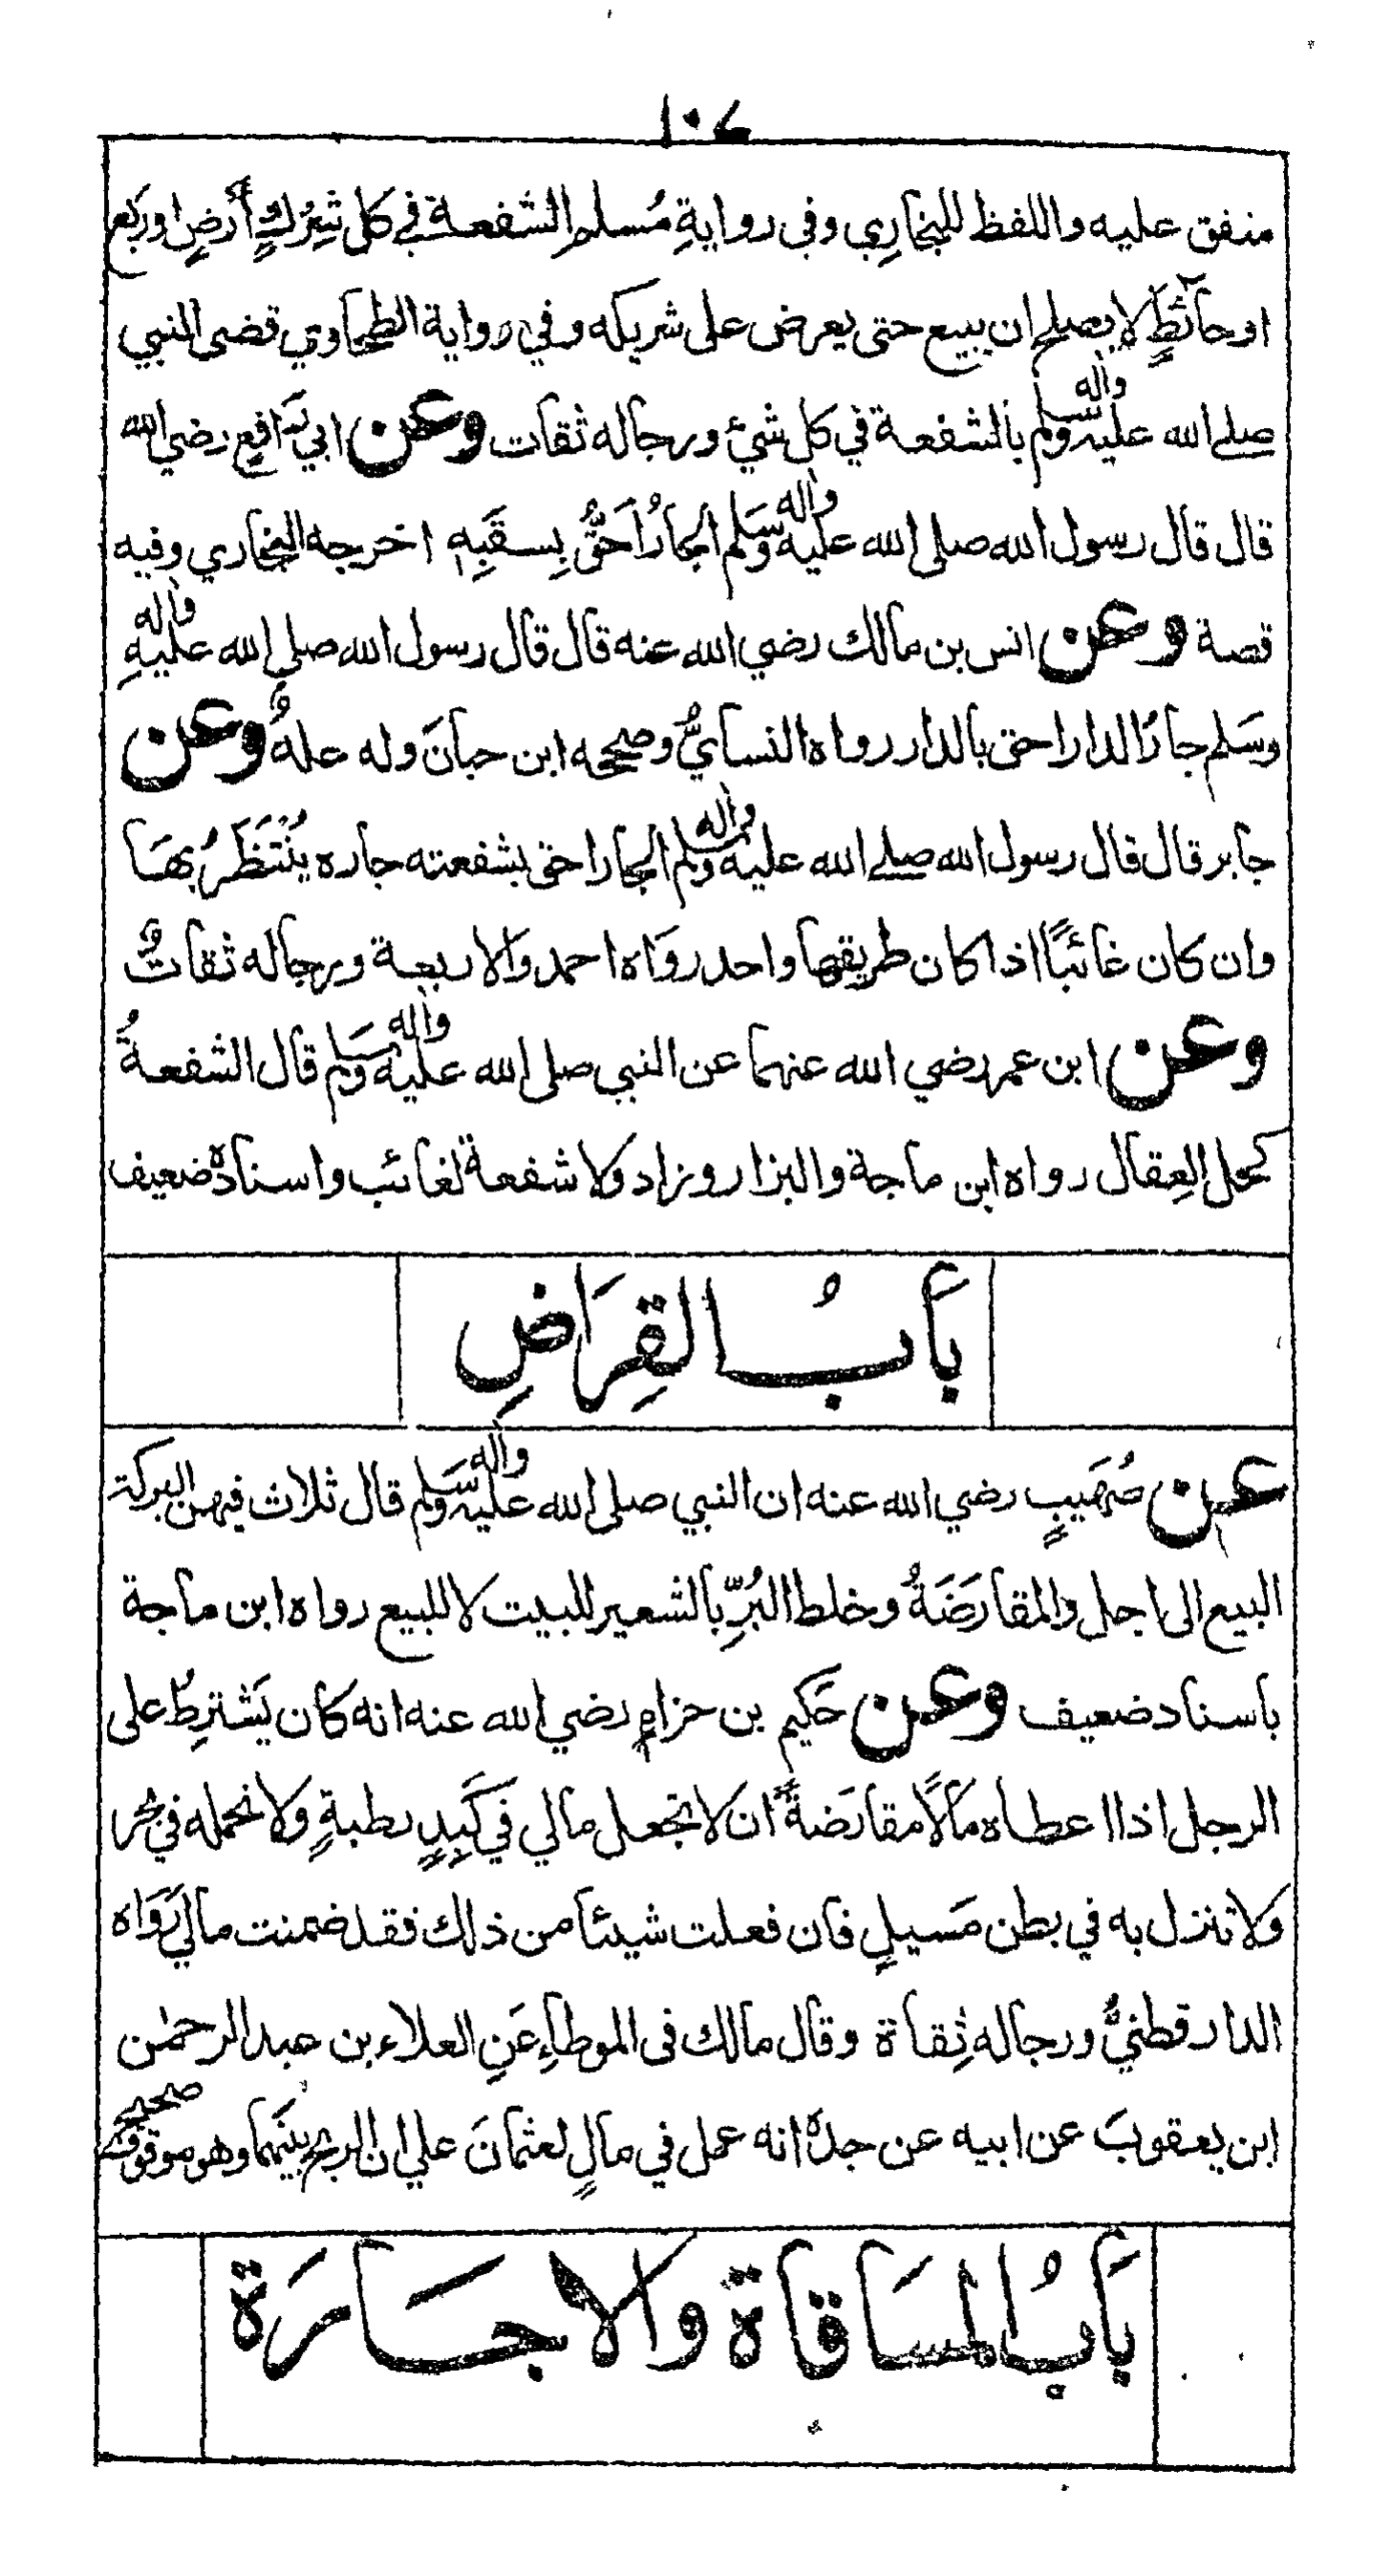 ١٠٤
متفق عليه واللفظ للبخاري وفي روايةِ مُسلمٍ الشفعة في كل شِرْكٍ أرضٍ او ربع
او حائطٍ لا يصلح ان يبيع حتى يعرض على شريكه وفي رواية الطحاوي قضى النبي
صلى الله عليه واٰله وسلم بالشفعة في كل شيءٍ ورجاله ثقات وعن ابي رافعٍ رضي الله
قال قال رسول الله صلى الله عليه واٰله وسَلم الجارُ اَحَقُّ بِسقَبِهِ اخرجه البخاري وفيه
قصة وعن انس بن مالك رضي الله عنه قال قال رسول الله صلى الله عليهِ واٰله
وسَلم جارُ الدار احق بالدار رواه النسايُّ وصححه ابن حبانَ وله علةٌ وعن
جابر قال قال رسول الله صلى الله عليه واٰله وسلم الجار احق بشفعته جاره يُنْتَظَرُ بهَا
وان كان غائبًا اذا كان طريقهما واحد روَاه احمد والاربعة ورجاله ثقاتٌ
وعن ابن عمر رضي الله عنهما عن النبي صلى الله عليه واٰله وسلم قال الشفعةُ
كحل العِقال رواه ابن ماجة والبزار وزاد ولا شفعة لغائب واسناده ضعيف
بَابُ القِرَاضِ
عن صُهَيبٍ رضي الله عنه ان النبي صلى الله عليه واٰله وسَلم قال ثلاث فيهن البركة
البيع الى اجل والمقارَضَةُ وخلط البُرِّ بالشعير للبيت لا للبيع رواه ابن ماجة
باسناد ضعيف وعن حَكيم بن حزامٍ رضي الله عنه انه كان يَشْترِطُ على
الرجل اذا اعطاه مالًا مقارَضةً ان لا تجعل مالي في كَبِدٍ رطبةٍ ولا تحمله في بحر
ولا تنزل به في بطن مَسيلٍ فان فعلت شيئا من ذلك فقد ضمنت مالي رَوَاه
الدارقطنيُّ ورجاله ثِقاة وقال مالك في الموطاءِ عَنِ العلاء بن عبد الرحمٰن
ابن يعقوبَ عن ابيه عن جدهٖ انه عمل في مالٍ لعثمانَ على ان الربح بينَهما وهو موقوف صحيح
بَابُ المسَاقاة وَالاجَارَة